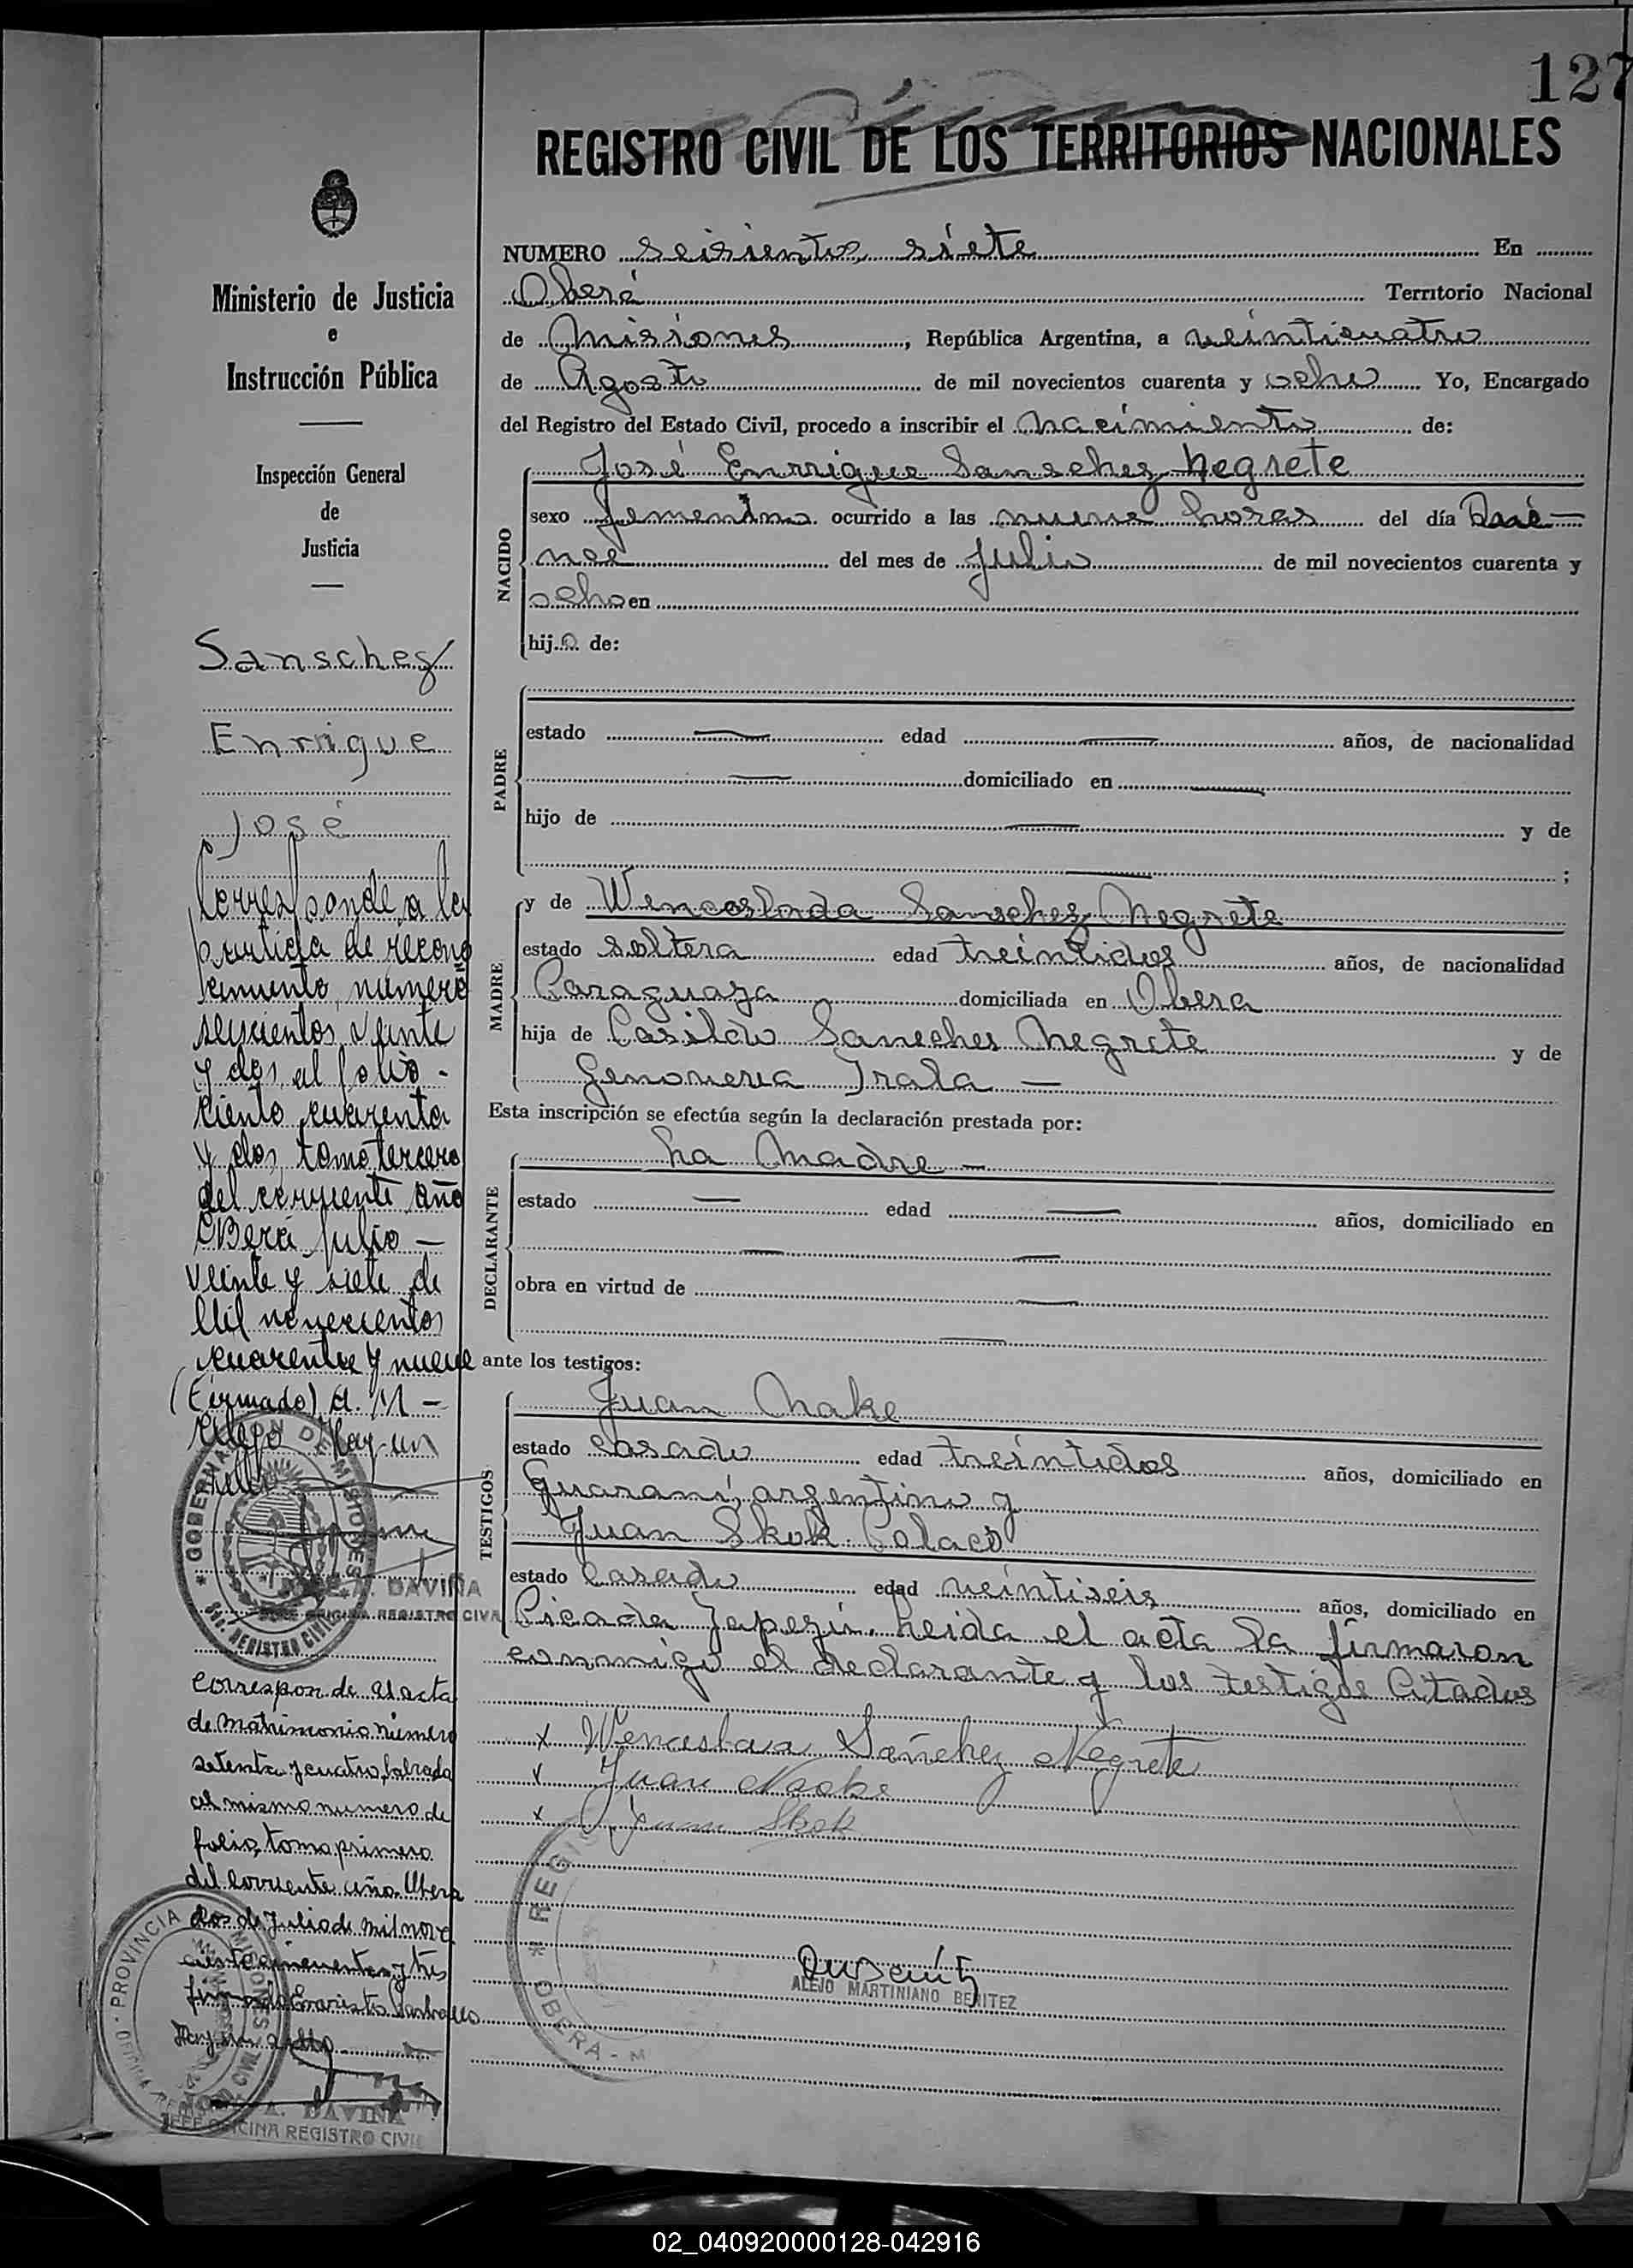 127
REGISTRO CIVIL DE LOS TERRITORIOS NACIONALES
Ministerio de Justicia
e
Instrucción Pública
Inspección General
de
Justicia
Sanschez
Enrrique
José
Corresponde a la
partida de recono
cimiento, número
seiscientos veinte
y dos al folio -
ciento cuarenta
y dos, tomo tercero
del corriente año
Oberá Julio -
veinte y siete de
Mil novecientos
cuarenta y nueve
(Firmado) A. M -
Hay un
sello
GOBERNACION DE MISIONES
REGISTRO CIVIL
DAVIÑA
JEFE OFICINA REGISTRO CIVIL
Corresponde al acta
de matrimonio número
setenta y cuatro, labrada
al mismo numero de
folio, tomo primero
del corriente año. Obera
dos de Julio de mil nove
cientos cincuenta y tres
firmado Evaristo
Hay un sello
PROVINCIA MISIONES
A. DAVIÑA
JEFE OFICINA REGISTRO CIVIL
NUMERO seisientos siete En
Oberá Territorio Nacional
de Misiones, República Argentina, a veinticuatro
de Agosto de mil novecientos cuarenta y ocho Yo, Encargado
del Registro del Estado Civil, procedo a inscribir el nacimiento de:
NACIDO
José Enrrique Sanschez Negrete
sexo femenino ocurrido a las nueve horas del día
del mes de Julio de mil novecientos cuarenta y
ocho en
hijo de:
PADRE
estado — edad — años, de nacionalidad
— domiciliado en —
hijo de — y de
— ;
MADRE
y de Wenceslada Sanschez Negrete
estado soltera edad treintidos años, de nacionalidad
Paraguaya domiciliada en Obera
hija de Casildo Sanschez Negrete y de
Genoveva Irala —
Esta inscripción se efectúa según la declaración prestada por:
DECLARANTE
La Madre —
estado — edad — años, domiciliado en
— —
obra en virtud de —
—
ante los testigos:
TESTIGOS
Juan Nake
estado casado edad treintidos años, domiciliado en
Guaraní, argentino y
Juan Skok Polaco
estado casado edad veintiseis años, domiciliado en
Picada Yapeyú. Leida el acta la firmaron
conmigo el declarante y los testigos Citados
x Wenceslaa Sánchez Negrete
x Juan Naake
x Juan Skok
REGIS
OBERA - M
ALEJO MARTINIANO BENITEZ
02_040920000128-042916